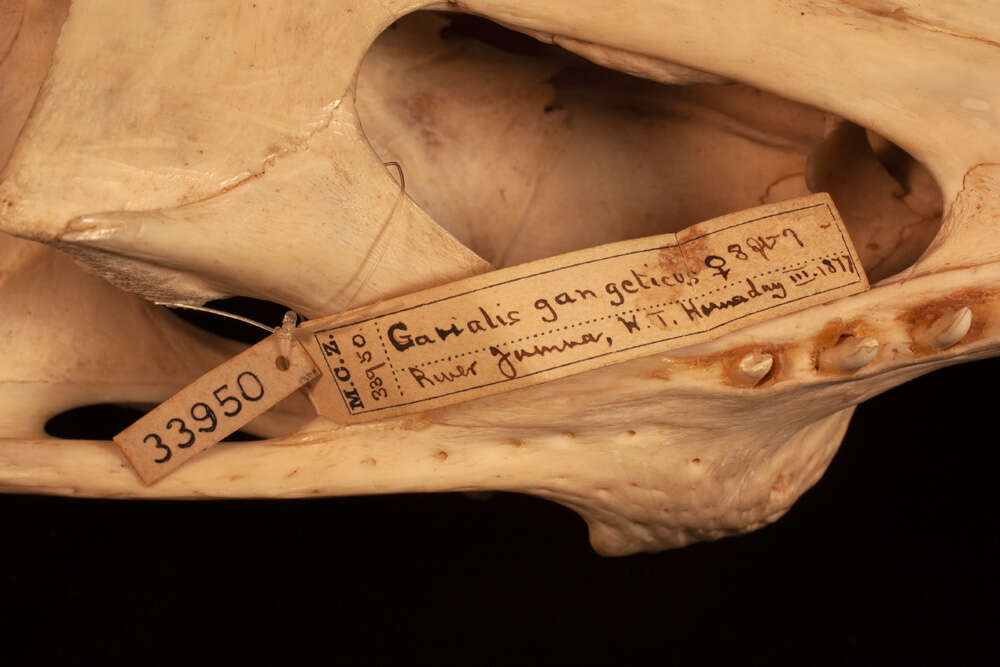 33950
M.C.Z.
33950
Gavialis gangeticus ♀
River Jumna, W. T. Hornaday III. 1877